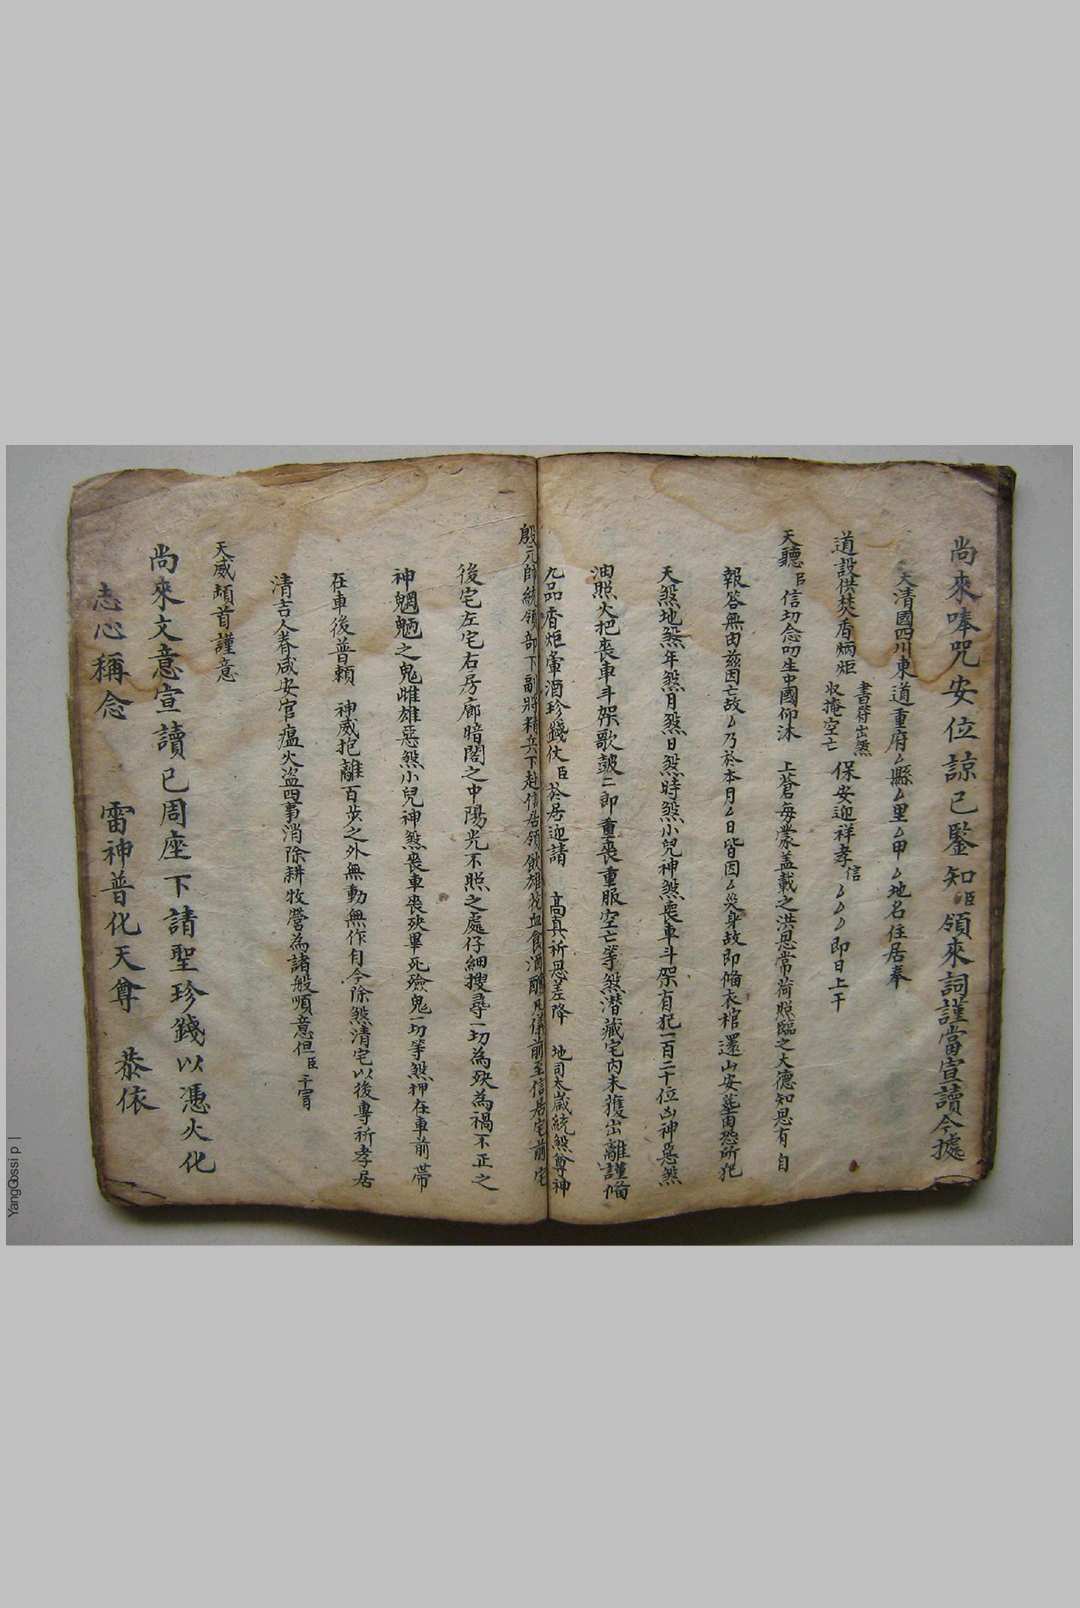 尚來唪咒安位諒已鑒知臣領來詞謹當宣讀今據
大清國四川東道重府厶縣厶里厶甲厶地名住居奉
道設供焚香炳炬 書符出煞 收掩空亡 保安迎祥孝信厶厶厶即日上干
天聽臣信切念叨生中國仰沐 上蒼每蒙盖載之洪恩常荷照臨之大德知恩有自
報答無由茲因亡故厶乃於本月厶日皆因厶災身故即俻衣棺還山安墓因恐所犯
天煞地煞年煞月煞日煞時煞小兒神煞喪車斗架有犯一百二十位凶神惡煞
油照火把喪車斗架歌皷二郎重喪重服空亡等煞潛藏宅内未獲出離謹俻
九品香炬葷酒珍錢仗臣苔居迎請 高真祈恩差降 地司太歲統煞尊神
殷元帥統領部下副將精兵下赴信居領飲雄花血食酒醴凡儀前至信居宅前宅
後宅左宅右房廊暗閣之中陽光不照之處仔細搜尋一切為殃為禍不正之
神魍魎之鬼雌雄惡煞小兒神煞喪車喪殃畢死殮鬼一切等煞押在車前帶
在車後普賴 神威抱離百步之外無動無作自今除煞清宅以後專祈孝居
清吉人眷咸安官瘟火盜四事消除耕牧營為諸般順意但臣干冒
天威頓首謹意
尚來文意宣讀已周座下請聖珍錢以憑火化
志心稱念 雷神普化天尊 恭依
YangGossi p |